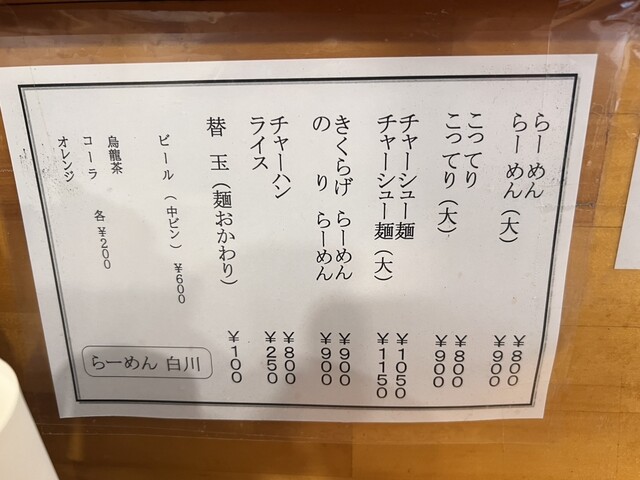 らーめん ￥800
らーめん（大） ￥900
こってり ￥800
こってり（大） ￥900
チャーシュー麺 ￥1050
チャーシュー麺（大） ￥1150
きくらげ らーめん ￥900
のり らーめん ￥900
チャーハン ￥800
ライス ￥250
替玉（麺おかわり） ￥100
ビール（中ビン） ￥600
烏龍茶
コーラ 各￥200
オレンジ
らーめん 白川